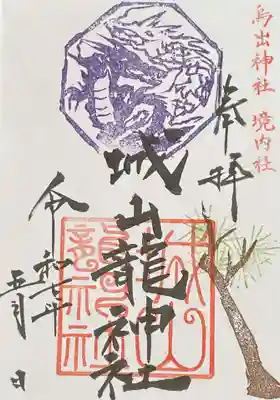 鳥出神社 境内社
奉拝
城山龍神社
城山
龍神社
令和七年
五月 日